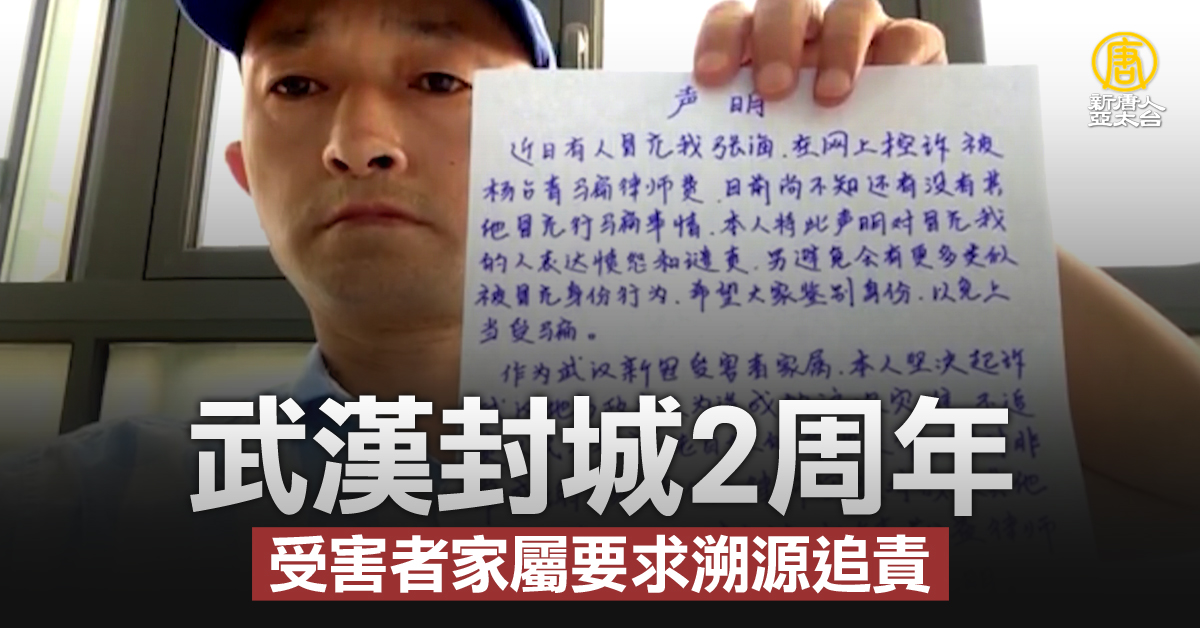 唐
新唐人
亞太台
声明
近日有人冒充我张海、在网上控诉被
杨占青骗律师费、目前尚不知还有没有其
他冒充行骗事情、本人特此声明对冒充我
的人表达愤怒和谴责、另避免会有更多类似
被冒充身份行为、希望大家鉴别身份、以免上
当受骗。
作为武汉新冠受害者家属、本人坚决起诉
武漢封城2周年
受害者家屬要求溯源追責